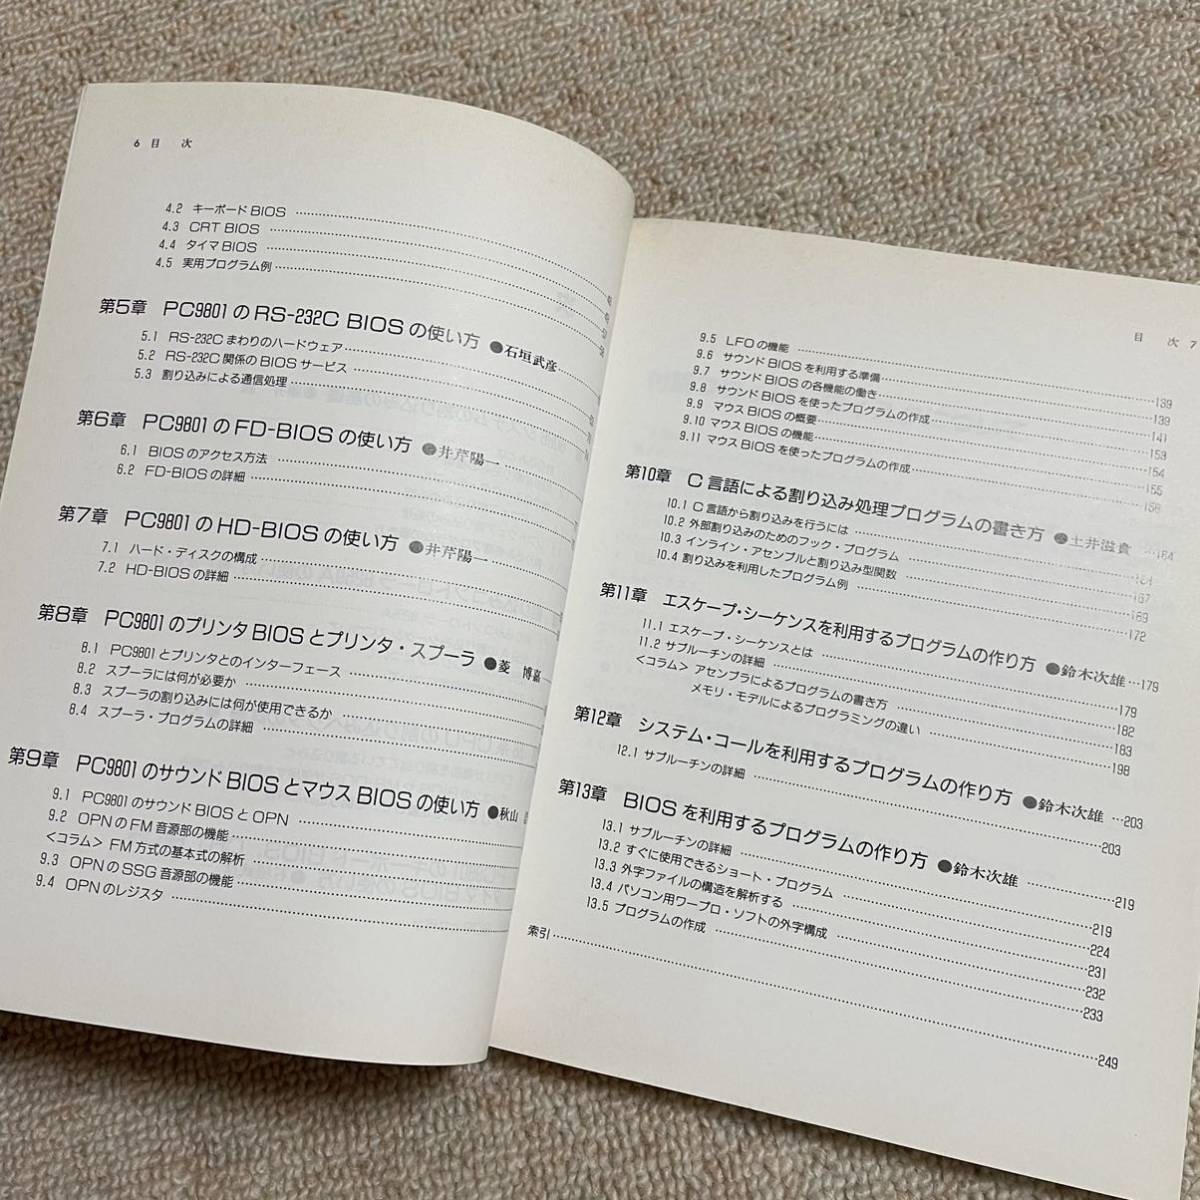 6 目 次
4.2 キーボード BIOS
4.3 CRT BIOS
4.4 タイマ BIOS
4.5 実用プログラム例
第5章 PC9801 の RS-232C BIOS の使い方 ●石垣武彦
5.1 RS-232C まわりのハードウェア
5.2 RS-232C 関係の BIOS サービス
5.3 割り込みによる通信処理
第6章 PC9801 の FD-BIOS の使い方 ●井芹陽一
6.1 BIOS のアクセス方法
6.2 FD-BIOS の詳細
第7章 PC9801 の HD-BIOS の使い方 ●井芹陽一
7.1 ハード・ディスクの構成
7.2 HD-BIOS の詳細
第8章 PC9801 のプリンタ BIOS とプリンタ・スプーラ ●菱 博嘉
8.1 PC9801 とプリンタとのインターフェース
8.2 スプーラには何が必要か
8.3 スプーラの割り込みには何が使用できるか
8.4 スプーラ・プログラムの詳細
第9章 PC9801 のサウンド BIOS とマウス BIOS の使い方 ●秋山
9.1 PC9801 のサウンド BIOS と OPN
9.2 OPN の FM 音源部の機能
<コラム> FM 方式の基本式の解析
9.3 OPN の SSG 音源部の機能
9.4 OPN のレジスタ
目 次 7
9.5 LFO の機能 139
9.6 サウンド BIOS を利用する準備 139
9.7 サウンド BIOS の各機能の働き 141
9.8 サウンド BIOS を使ったプログラムの作成 153
9.9 マウス BIOS の概要 154
9.10 マウス BIOS の機能 155
9.11 マウス BIOS を使ったプログラムの作成 158
第10章 C 言語による割り込み処理プログラムの書き方 ●土井滋貴 164
10.1 C 言語から割り込みを行うには 164
10.2 外部割り込みのためのフック・プログラム 167
10.3 インライン・アセンブルと割り込み型関数 169
10.4 割り込みを利用したプログラム例 172
第11章 エスケープ・シーケンスを利用するプログラムの作り方 ●鈴木次雄 179
11.1 エスケープ・シーケンスとは 179
11.2 サブルーチンの詳細 182
<コラム> アセンブラによるプログラムの書き方 183
メモリ・モデルによるプログラミングの違い 198
第12章 システム・コールを利用するプログラムの作り方 ●鈴木次雄 203
12.1 サブルーチンの詳細 203
第13章 BIOS を利用するプログラムの作り方 ●鈴木次雄 219
13.1 サブルーチンの詳細 219
13.2 すぐに使用できるショート・プログラム 224
13.3 外字ファイルの構造を解析する 231
13.4 パソコン用ワープロ・ソフトの外字構成 232
13.5 プログラムの作成 233
索引 249